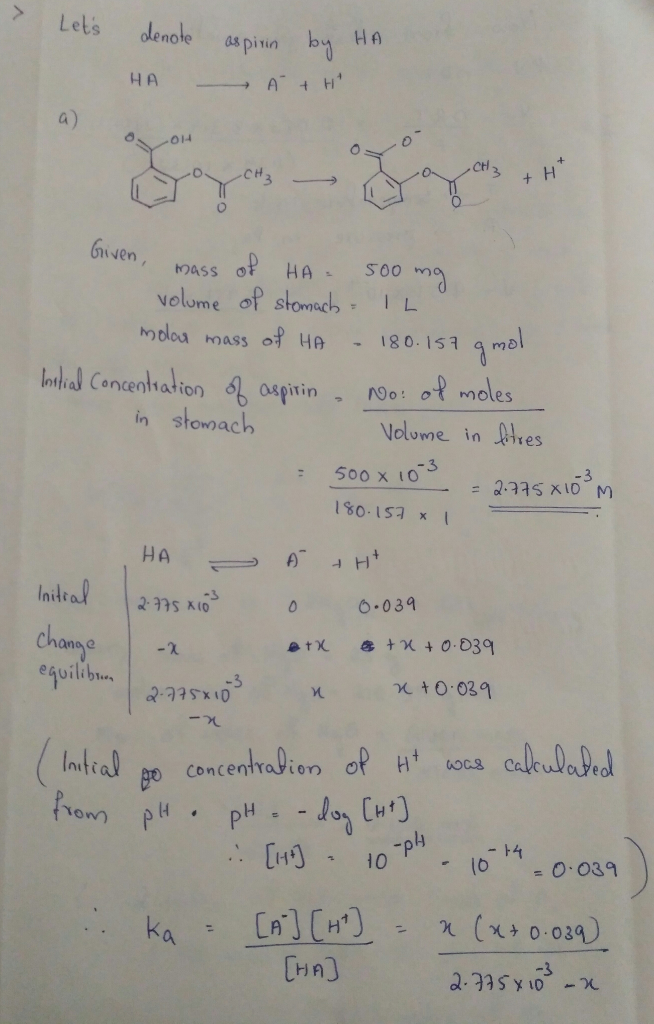 >
Let's denote aspirin by HA
HA ⟶ A⁻ + H⁺
a)
O OH O CH3 O ⟶ O O⁻ O CH3 O + H⁺
Given,
mass of HA = 500 mg
volume of stomach = 1 L
molar mass of HA - 180.157 g mol
Initial Concentration of aspirin = No: of moles
in stomach Volume in litres
= 500 x 10⁻³ = 2.775 x 10⁻³ M
180.157 x 1
HA ⇌ A⁻ + H⁺
Initial 2.775 x 10⁻³ 0 0.039
Change -x +x +x + 0.039
equilibrium 2.775 x 10⁻³ x x + 0.039
-x
( Initial concentration of H⁺ was calculated
from pH . pH = - log [H⁺]
∴ [H⁺] = 10⁻ᵖᴴ - 10⁻¹·⁴ = 0.039 )
∴ Ka = [A⁻] [H⁺] = x (x + 0.039)
[HA] 2.775 x 10⁻³ - x